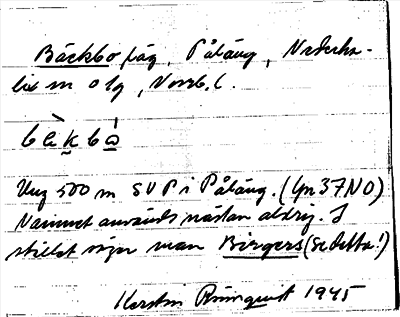 Bäckbo, Påläng, Nederka-
lix sn o lg, Norrb. l.
bɛ̀kbò
Ung 500 m SV P i Påläng. (Gn 37 NO)
Namnet används nästan aldrig. I
stället säger man Birgers (se detta!)
Kerstin Rönnquist 1945